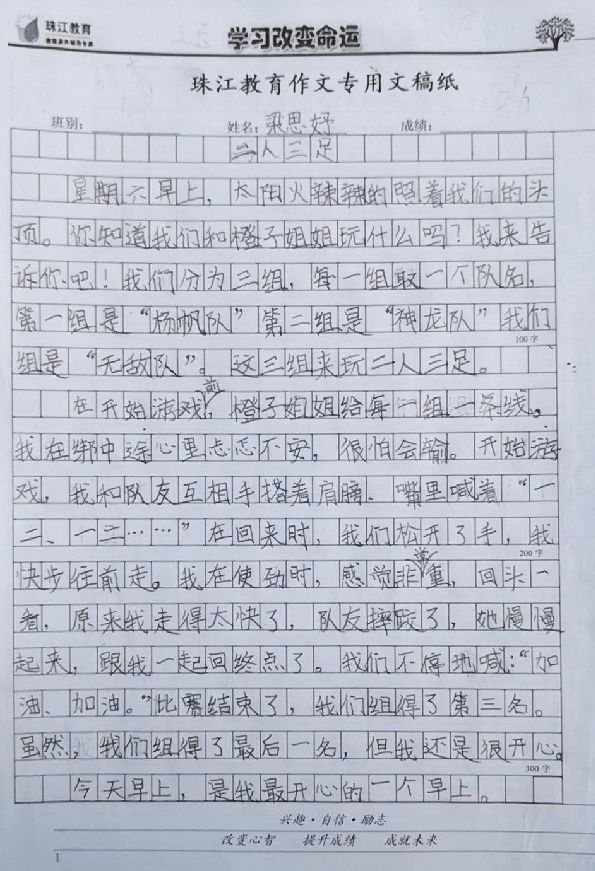 珠江教育
学习改变命运
珠江教育作文专用文稿纸
班别: 姓名: 梁思妤 成绩:
二人三足
星期六早上，太阳火辣辣的照着我们的头
顶。你知道我们和橙子姐姐玩什么吗？我来告
诉你吧！我们分为三组，每一组取一个队名，
第一组是“杨帆队”第二组是“神龙队”我们
100字
组是“无敌队”。这三组来玩二人三足。
在开始游戏前，橙子姐姐给每一组一条线。
我在绑中途心里忐忑不安，很怕会输。开始游
戏，我和队友互相手搭着肩膀、嘴里喊着“一
二、一二……”在回来时，我们松开了手，我
200字
快步往前走。我在使劲时，感觉非常重，回头一
看，原来我走得太快了，队友摔跤了，她慢慢
起来，跟我一起回终点了。我们不停地喊：“加
油、加油。”比赛结束了，我们组得了第三名。
虽然，我们组得了最后一名，但我还是很开心。
300字
今天早上，是我最开心的一个早上。
兴趣·自信·励志
改变心智 提升成绩 成就未来
1